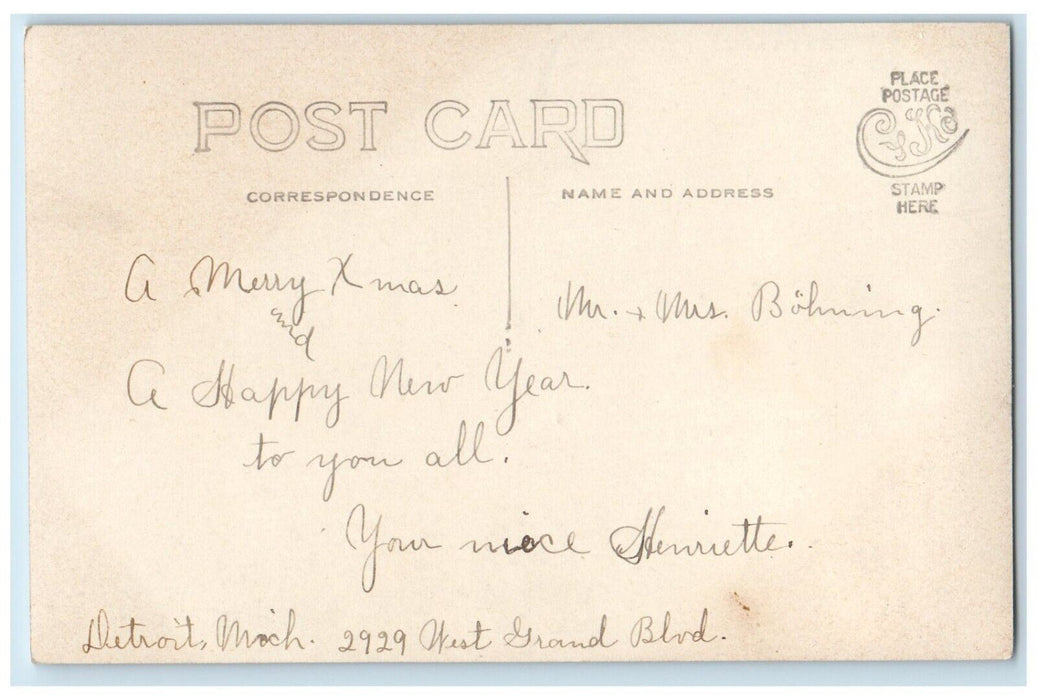 POST CARD
PLACE
POSTAGE
STAMP
HERE
CORRESPONDENCE
NAME AND ADDRESS
A Merry Xmas
and
A Happy New Year.
to you all.
Your niece Henriette.
Detroit, Mich. 2929 West Grand Blvd.
Mr. + Mrs. Böhning.